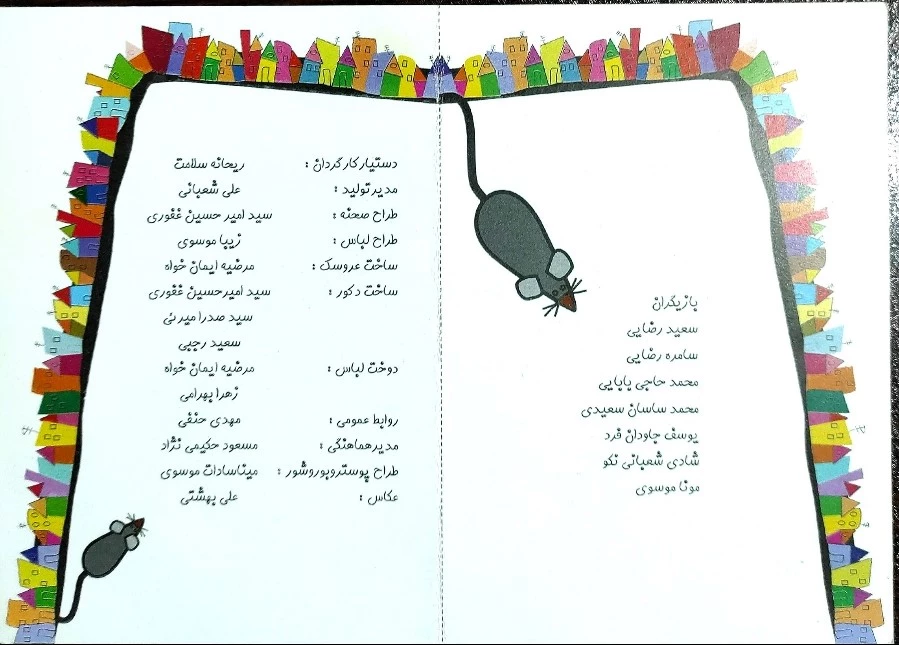 بازیگران
سعید رضایی
سامره رضایی
محمد حاجی بابایی
محمد ساسان سعیدی
یوسف جاودان فرد
شادی شعبانی نکو
مونا موسوی
دستیار کارگردان : ریحانه سلامت
مدیر تولید : علی شعبانی
طراح صحنه : سید امیر حسین غفوری
طراح لباس : زیبا موسوی
ساخت عروسک : مرضیه ایمان خواه
ساخت دکور : سید امیرحسین غفوری
سید صدرا میر نی
سعید رجبی
دوخت لباس : مرضیه ایمان خواه
زهرا بهرامی
روابط عمومی : مهدی حنفی
مدیر هماهنگی : مسعود حکیمی نژاد
طراح پوستروبوروشور : میناسادات موسوی
عکاس : علی بهشتی